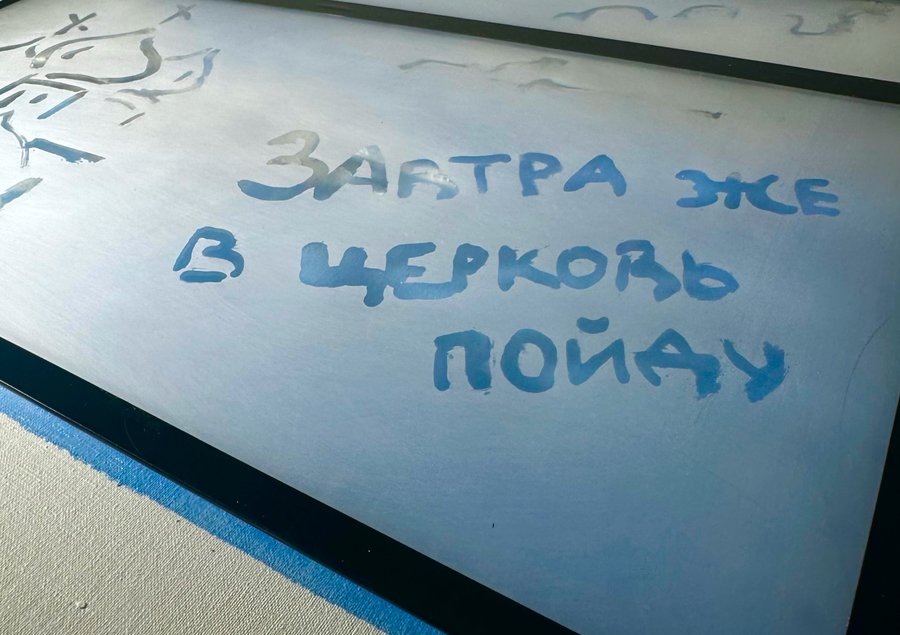 ЗАВТРА ЖЕ
В ЦЕРКОВЬ
ПОЙДУ